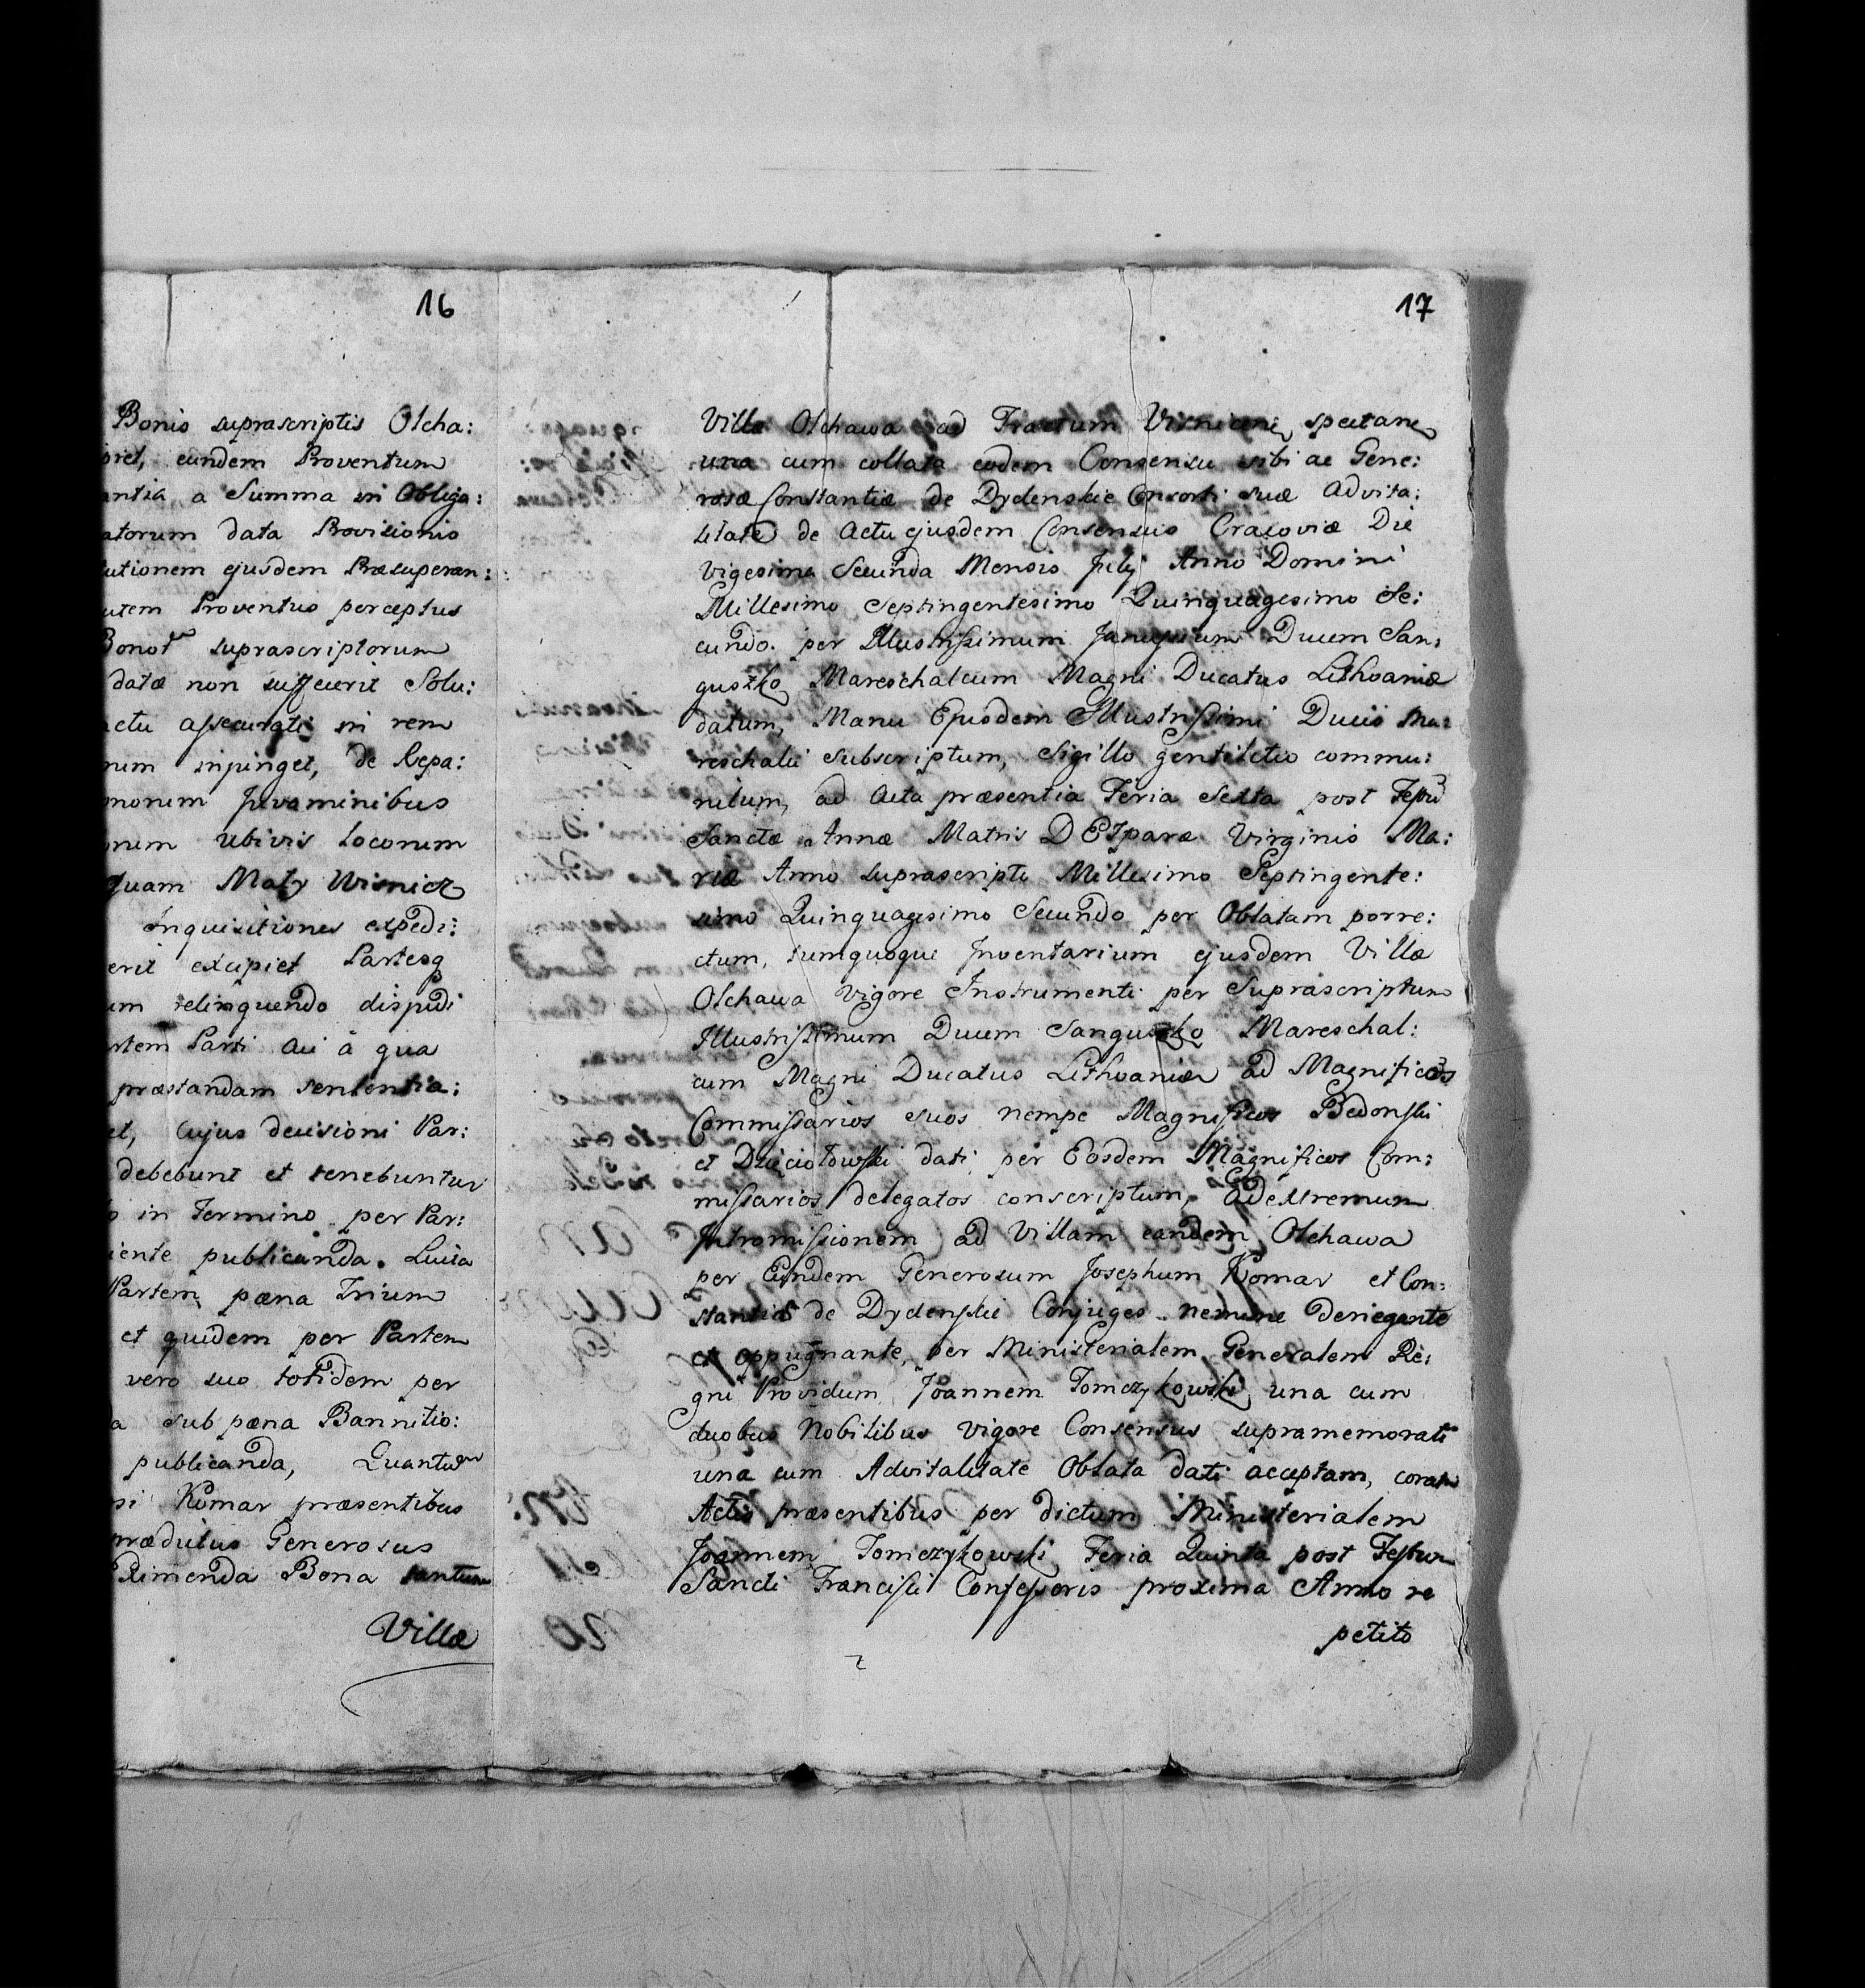 16
Bonis suprascriptis Olcha:
piet, eundem Proventum
antia a Summa in Obliga:
atorum data Provisionis
lutionem ejusdem Præsuperan:
utem Proventus perceptus
suprascriptorum
datæ non suffecerit Solu:
actu assecurati in rem
num inpinget, de Repa:
monum Juraminibus
onem ubivis Locorum
quam Maly Wisnicz
Inquisitiones expedi:
erit excipiet Partesq
um relinquendo
rtem Parti a qua
præstandam sententia:
et, Cujus decisioni Par:
debebunt et tenebuntur
in Termino per Par:
iente publicanda. Luita
Partem pæna Trium
et quidem per Partem
vero suo totidem per
a sub pæna Bannitio:
publicanda, Quantum
si Komar præsentibus
prædictus Generosus
Redimenda Bona tantum
Villæ
17
Villæ Olchawa ad Tractum Visnicen spectan
una cum collata eodem Consensu sibi ac Gene:
rosæ Constantiæ de Dydenskie Consorti suæ Advita:
litate de Actu ejusdem Consensus Cracoviæ Die
Vigesima Secunda Mensis Julij Anno Domini
Millesimo Septingentesimo Quinquagesimo Se:
cundo. per Illustrissimum Janussium Ducem San:
guszko Mareschalcum Magni Ducatus Lithvaniæ
datum, Manu Ejusdem Illustrissimi Ducis Ma:
reschalci subscriptum, Sigillo gentilitio commu:
nitum, ad Acta præsentia Feria Sexta post Festu
Sanctæ Annæ Matris DEIparæ Virginis Ma:
riæ Anno suprascripto Millesimo Septingente:
simo Quinquagesimo Secundo per Oblatam porre:
ctum, tumquoque Inventarium ejusdem Villæ
Olchawa Vigore Instrumenti per Suprascriptum
Illustrissimum Ducem Sanguszko Mareschal:
cum Magni Ducatus Lithvaniæ ad Magnificos
Commissarios suos nempe Magnificos Bedonski
et Dzięciołowski dati per Eosdem Magnificos Com:
missarios delegatos conscriptum, Ad extremum
Intromissionem ad Villam eandem Olchawa
per Eundem Generosum Josephum Komar et Con:
stantiæ de Dydenskie Conjuges nemine denegante
et oppugnante, per Ministerialem Generalem Re:
gni Providum Joannem Tomczykowski una cum
duobus Nobilibus vigore Consensus supramemorati
una cum Advitalitate Oblata dati acceptam, coram
Actis præsentibus per dictum Ministerialem
Joannem Tomczykowski Feria Quinta post Festum
Sancti Francisci Confessoris proxima Anno re
petito